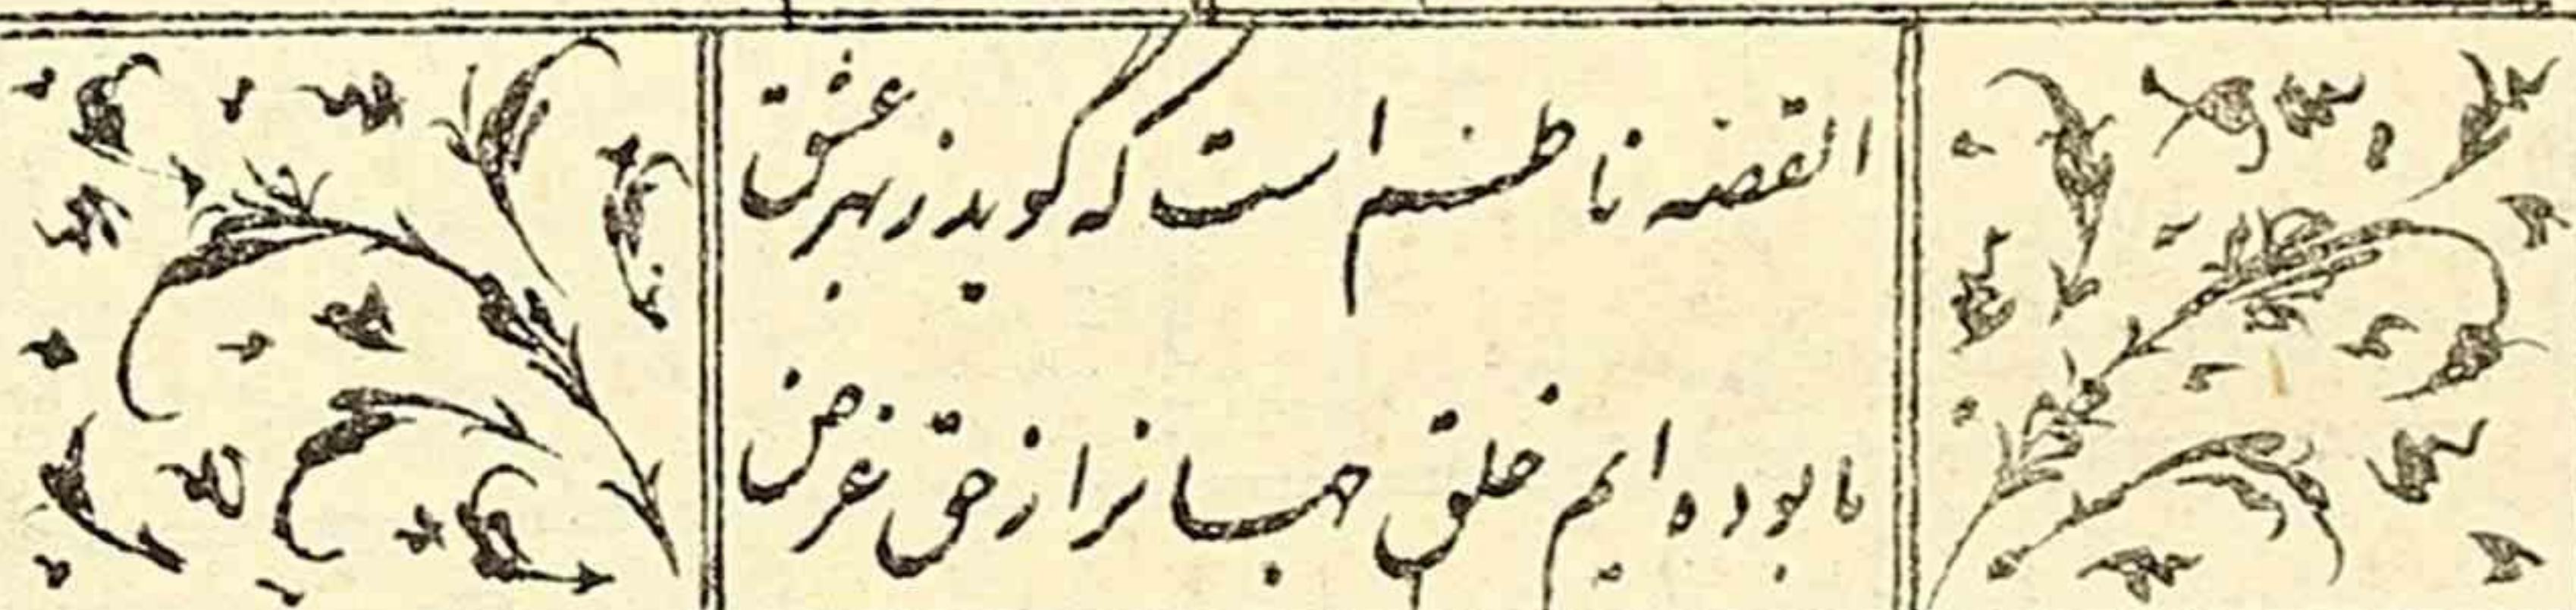 القصه ناظم است که گوید ز بهر عشق
ما بوده ایم خلق جهانرا ز حق غرض